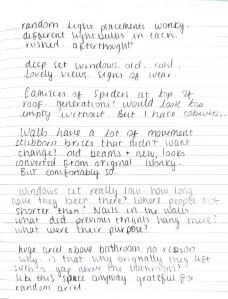 random light placements wonky.
different light bulbs in each.
rushed. afterthought?
deep set windows. old. cold.
lovely views. signs of wear.
Families of spiders at top of
roof. generations? would look too
empty without. But I hate cobwebs.
Walls have a lot of movement.
stubborn bricks that didn't want
change? old beams + new, looks
converted from original wonky.
But comfortably so.
windows set really low. how long
have they been there? where people just
shorter then? Nails in the walls.
what did previous tenants hang there?
what were their purpose?
huge ariel above bathroom no reason
why. is that why originally they left
such a gap above the bathroom?
like this space anyway grateful for
random ariel.